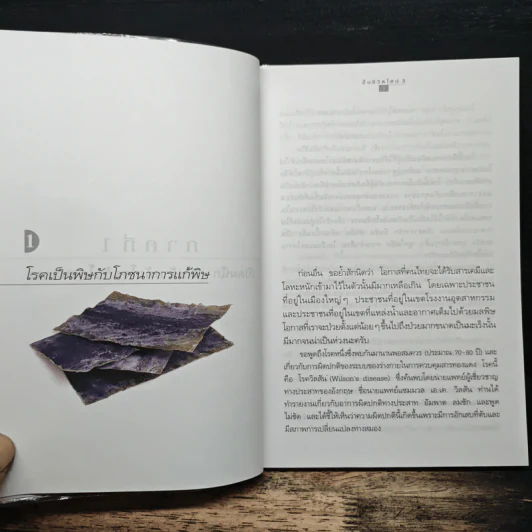 1
โรคเป็นพิษกับโภชนาการแก้พิษ
ก่อนอื่น ขอย้ำสักนิดว่า โอกาสที่คนไทยจะได้รับสารเคมีและ
โลหะหนักเข้ามาไว้ในตัวนั้นมีมากเหลือเกิน โดยเฉพาะประชาชน
ที่อยู่ในเมืองใหญ่ๆ ประชาชนที่อยู่ในเขตโรงงานอุตสาหกรรม
และประชาชนที่อยู่ในเขตที่แหล่งน้ำและอากาศเต็มไปด้วยมลพิษ
โอกาสที่เราจะป่วยตั้งแต่น้อยๆ ขึ้นไปถึงป่วยมากขนาดเป็นมะเร็งนั้น
มีมากจนน่าเป็นห่วงนะครับ
ขอพูดถึงโรคหนึ่งซึ่งพบกันมานานพอสมควร (ประมาณ 70-80 ปี) และ
เกี่ยวกับการผิดปกติของระบบของร่างกายในการควบคุมสารทองแดง โรคนี้
คือ โรควิลสัน (Wilson's disease) ซึ่งค้นพบโดยนายแพทย์ผู้เชี่ยวชาญ
ทางประสาทของอังกฤษ ชื่อนายแพทย์แซมมวล เอ.เค. วิลสัน ท่านได้
ทำรายงานเกี่ยวกับอาการผิดปกติทางประสาท อัมพาต ลมชัก และพูด
ไม่ชัด และได้ชี้ให้เห็นว่าความผิดปกตินี้เกิดขึ้นเพราะมีการอักเสบที่ตับและ
มีสภาพการเปลี่ยนแปลงทางสมอง